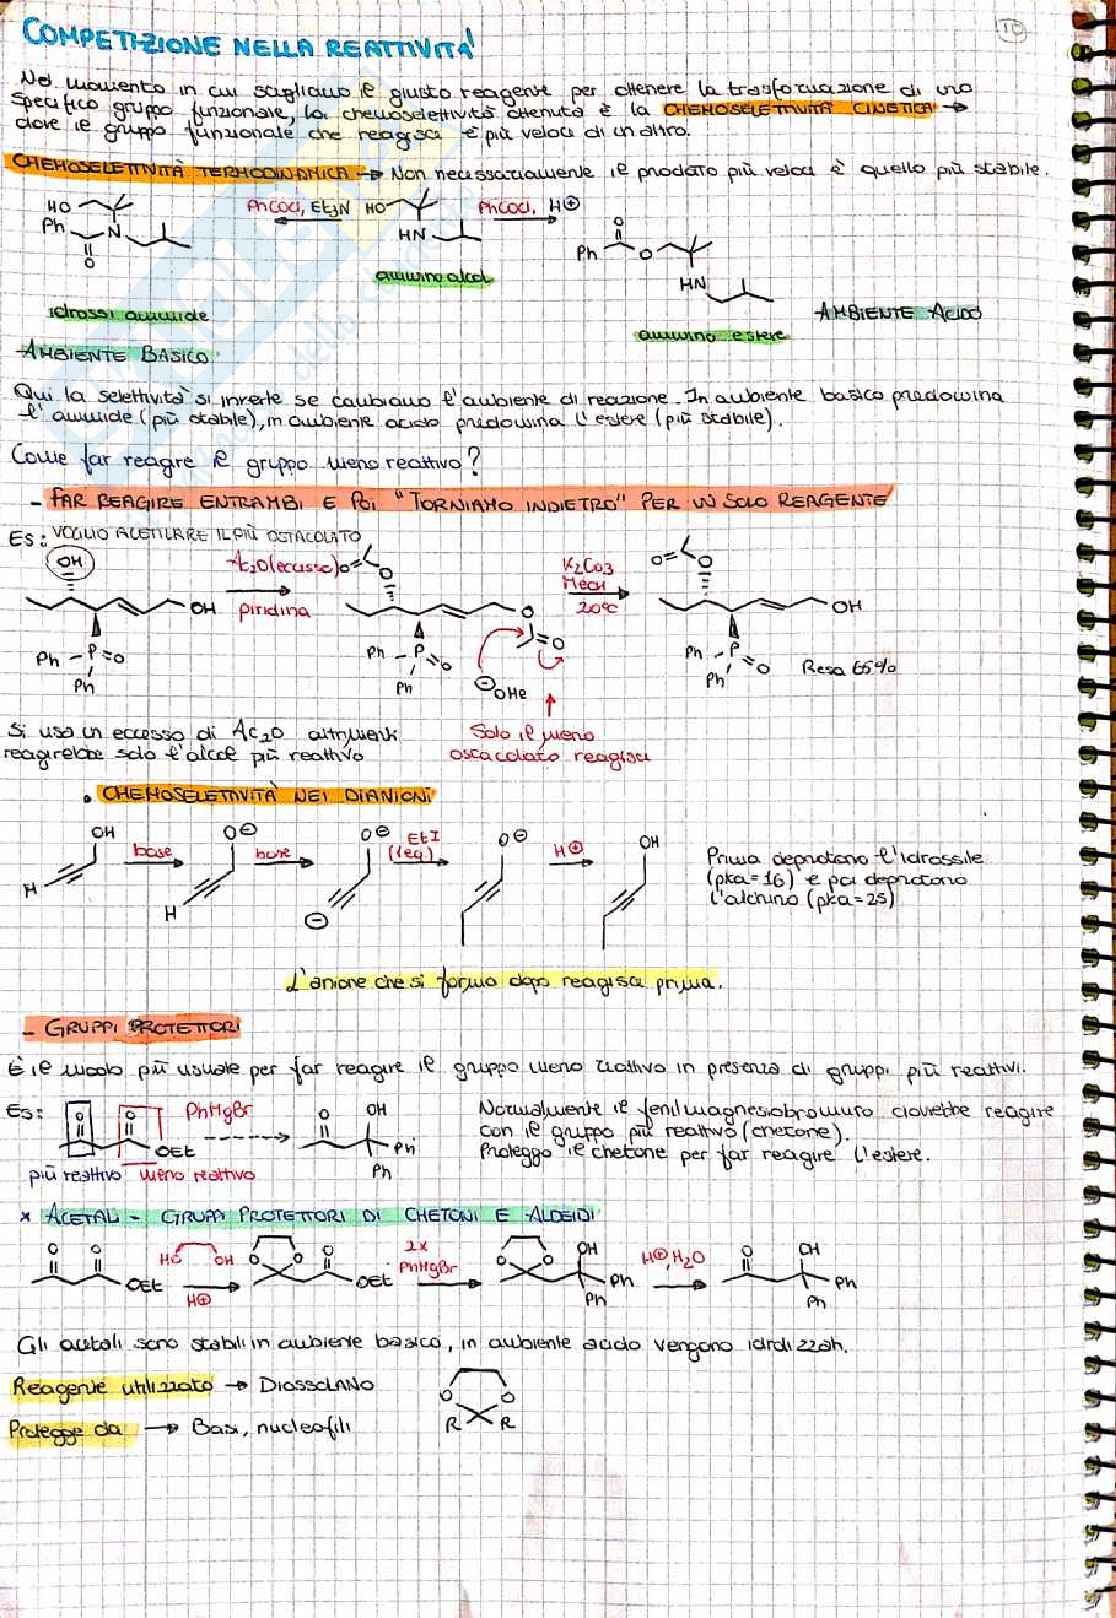 10
COMPETIZIONE NELLA REATTIVITA'
Nel momento in cui scegliamo il giusto reagente per ottenere la trasformazione di uno
specifico gruppo funzionale, la chemoselettività ottenuta è la CHEMOSELETTIVITÀ CINETICA →
dove il gruppo funzionale che reagisce è più veloce di un altro.
CHEMOSELETIVITÀ TERMODINAMICA → Non necessariamente il prodotto più veloce è quello più stabile.
HO PhCOCl, Et3N HO PhCOCl, H⊕ O
Ph N HN Ph O
O HN
ammino alcol
idrossi ammide ammino estere AMBIENTE ACIDO
AMBIENTE BASICO
Qui la selettività si inverte se cambiamo l'ambiente di reazione. In ambiente basico predomina
l'ammide (più stabile), in ambiente acido predomina l'estere (più stabile).
Come far reagire il gruppo meno reattivo?
- FAR REAGIRE ENTRAMBI E POI "TORNIAMO INDIETRO" PER UN SOLO REAGENTE
Es: VOGLIO ACETILARE IL PIÙ OSTACOLATO
OH Ac2O (eccesso) O= O K2CO3 O= O
MeOH
OH piridina O 20°C OH
Ph - P=O Ph - P=O =O Ph - P=O
Ph Ph ⊖OMe Ph Resa 65%
Si usa un eccesso di Ac2O altrimenti Solo il meno
reagirebbe solo l'alcol più reattivo ostacolato reagisce
• CHEMOSELETIVITÀ NEI DIANIONI
OH base O⊖ base O⊖ EtI (1eq) O⊖ H⊕ OH
H H ⊖
Prima deprotono l'idrossile
(pka=16) e poi deprotono
l'alchino (pka=25)
L'anione che si forma dopo reagisce prima.
- GRUPPI PROTETTORI
È il modo più usuale per far reagire il gruppo meno reattivo in presenza di gruppi più reattivi.
Es: O O PhMgBr O OH Normalmente il fenilmagnesiobromuro dovrebbe reagire
OEt Ph con il gruppo più reattivo (chetone).
più reattivo meno reattivo Ph Proteggo il chetone per far reagire l'estere.
* ACETALI - GRUPPI PROTETTORI DI CHETONI E ALDEIDI
O O HO OH O O O 2x PhMgBr O O OH H⊕, H2O O OH
OEt H⊕ OEt Ph Ph Ph Ph
Gli acetali sono stabili in ambiente basico, in ambiente acido vengono idrolizzati.
Reagente utilizzato → DIOSSOLANO O O
Protegge da → Basi, nucleofili R R